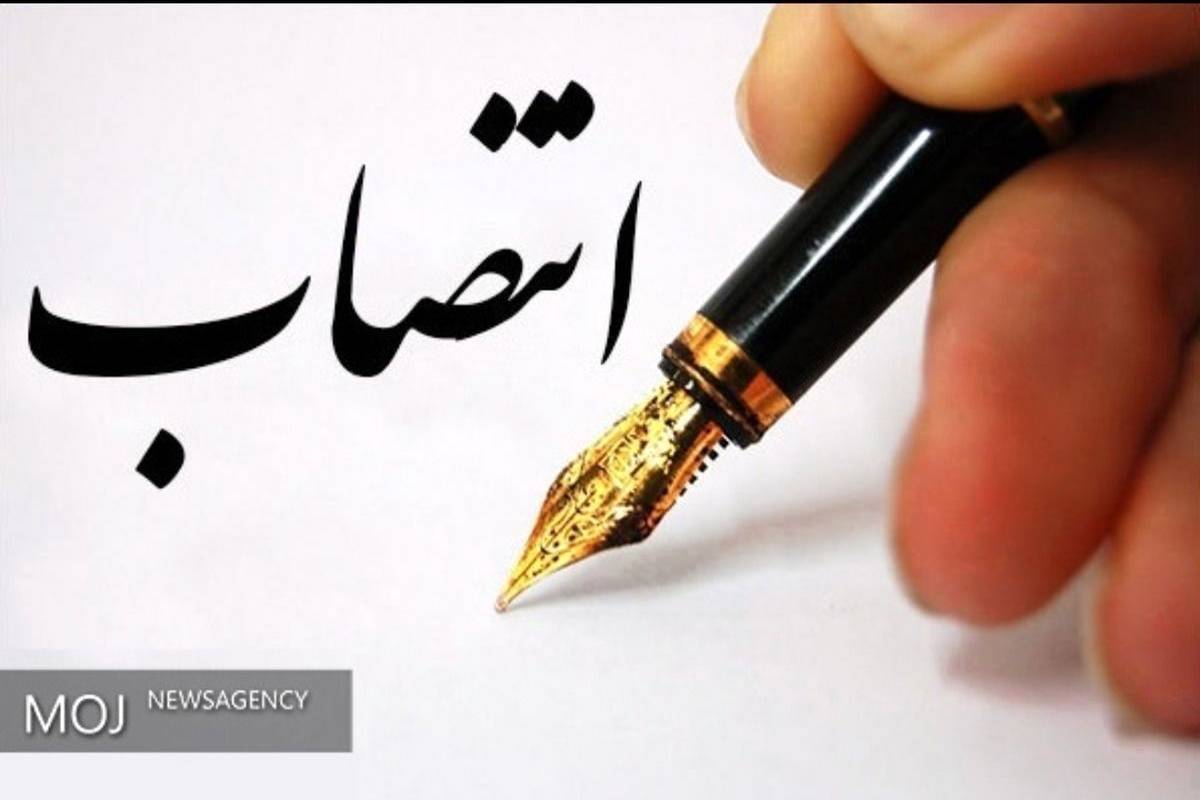 انتصاب
MOJ NEWSAGENCY